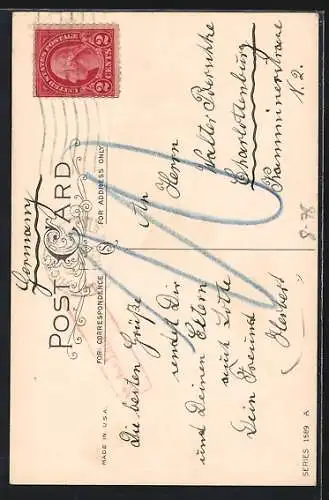 UNITED STATES POSTAGE
2 CENTS 2
Germany
POST CARD
FOR CORRESPONDENCE
FOR ADDRESS ONLY
MADE IN U.S.A.
Die besten Grüße
sendet Dir
und Deinen Eltern
auch Lotte
Dein Freund
Herbert
An Herrn
Walter
Charlottenburg
N. 2.
8-78
SERIES 1589 A